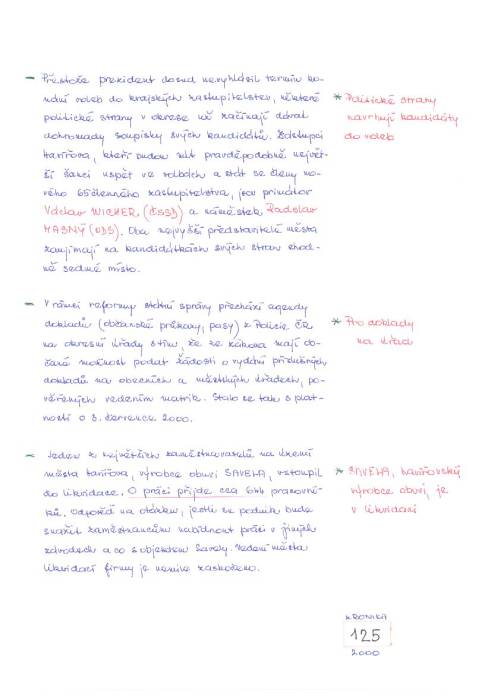 - Přestože prezident dosud nevyhlásil termín ko-
nání voleb do krajských zastupitelstev, některé
politické strany v okrese už začínají dávat
dohromady soupisky svých kandidátů. Zástupci
Havířova, kteří budou mít pravděpodobně největ-
ší šanci uspět ve volbách a stát se členy no-
vého 65členného zastupitelstva, jsou primátor
Václav WICHER (ČSSD) a náměstek Radoslav
MASNÝ (ODS). Oba nejvyšší představitelé města
zaujímají na kandidátkách svých stran shod-
ně sedmé místo.
* Politické strany
navrhují kandidáty
do voleb
- V rámci reformy státní správy přechází agendy
dokladů (občanské průkazy, pasy) z Policie ČR
na okresní úřady s tím, že ze zákona mají ob-
čané možnost podat žádosti o vydání příslušných
dokladů na obecních a městských úřadech, po-
věřených vedením matrik. Stalo se tak s plat-
ností o 3. července 2000.
* Pro doklady
na úřad
- Jeden z největších zaměstnavatelů na území
města Havířova, výrobce obuvi SAVELA, vstoupil
do likvidace. O práci přijde cca 644 pracovní-
ků. Odpověď na otázku, jestli se podnik bude
snažit zaměstnancům nabídnout práci v jiných
závodech a co s objektem Savely. Vedení města
likvidací firmy je nemile zaskočeno.
* SAVELA, havířovský
výrobce obuvi, je
v likvidaci
KRONIKA
125
2000